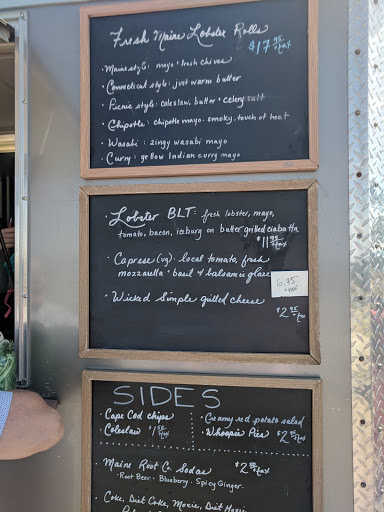 Fresh Maine Lobster Rolls
$17.95 +tax
· Maine style: mayo + fresh chives
· Connecticut style: just warm butter
· Picnic style: coleslaw, butter + celery salt
· Chipotle: chipotle mayo. smoky, touch of heat
· Wasabi: zingy wasabi mayo
· Curry: yellow Indian curry mayo
· Lobster BLT: fresh lobster, mayo,
tomato, bacon, iceburg on butter grilled ciabatta
$11.95 +tax
· Caprese (vg): local tomato, fresh
mozzarella + basil & balsamic glaze
6.75 +tax
· Wicked Simple grilled cheese
$2.95 +tax
SIDES
· Cape Cod chips
· Coleslaw $1.50 +tax
· Creamy red potato salad
· Whoopie Pies $2.95 +tax
· Maine Root Co. Sodas $2.50 +tax
· Root Beer · Blueberry · Spicy Ginger
Coke, Diet Coke, Moxie, Diet Moxie